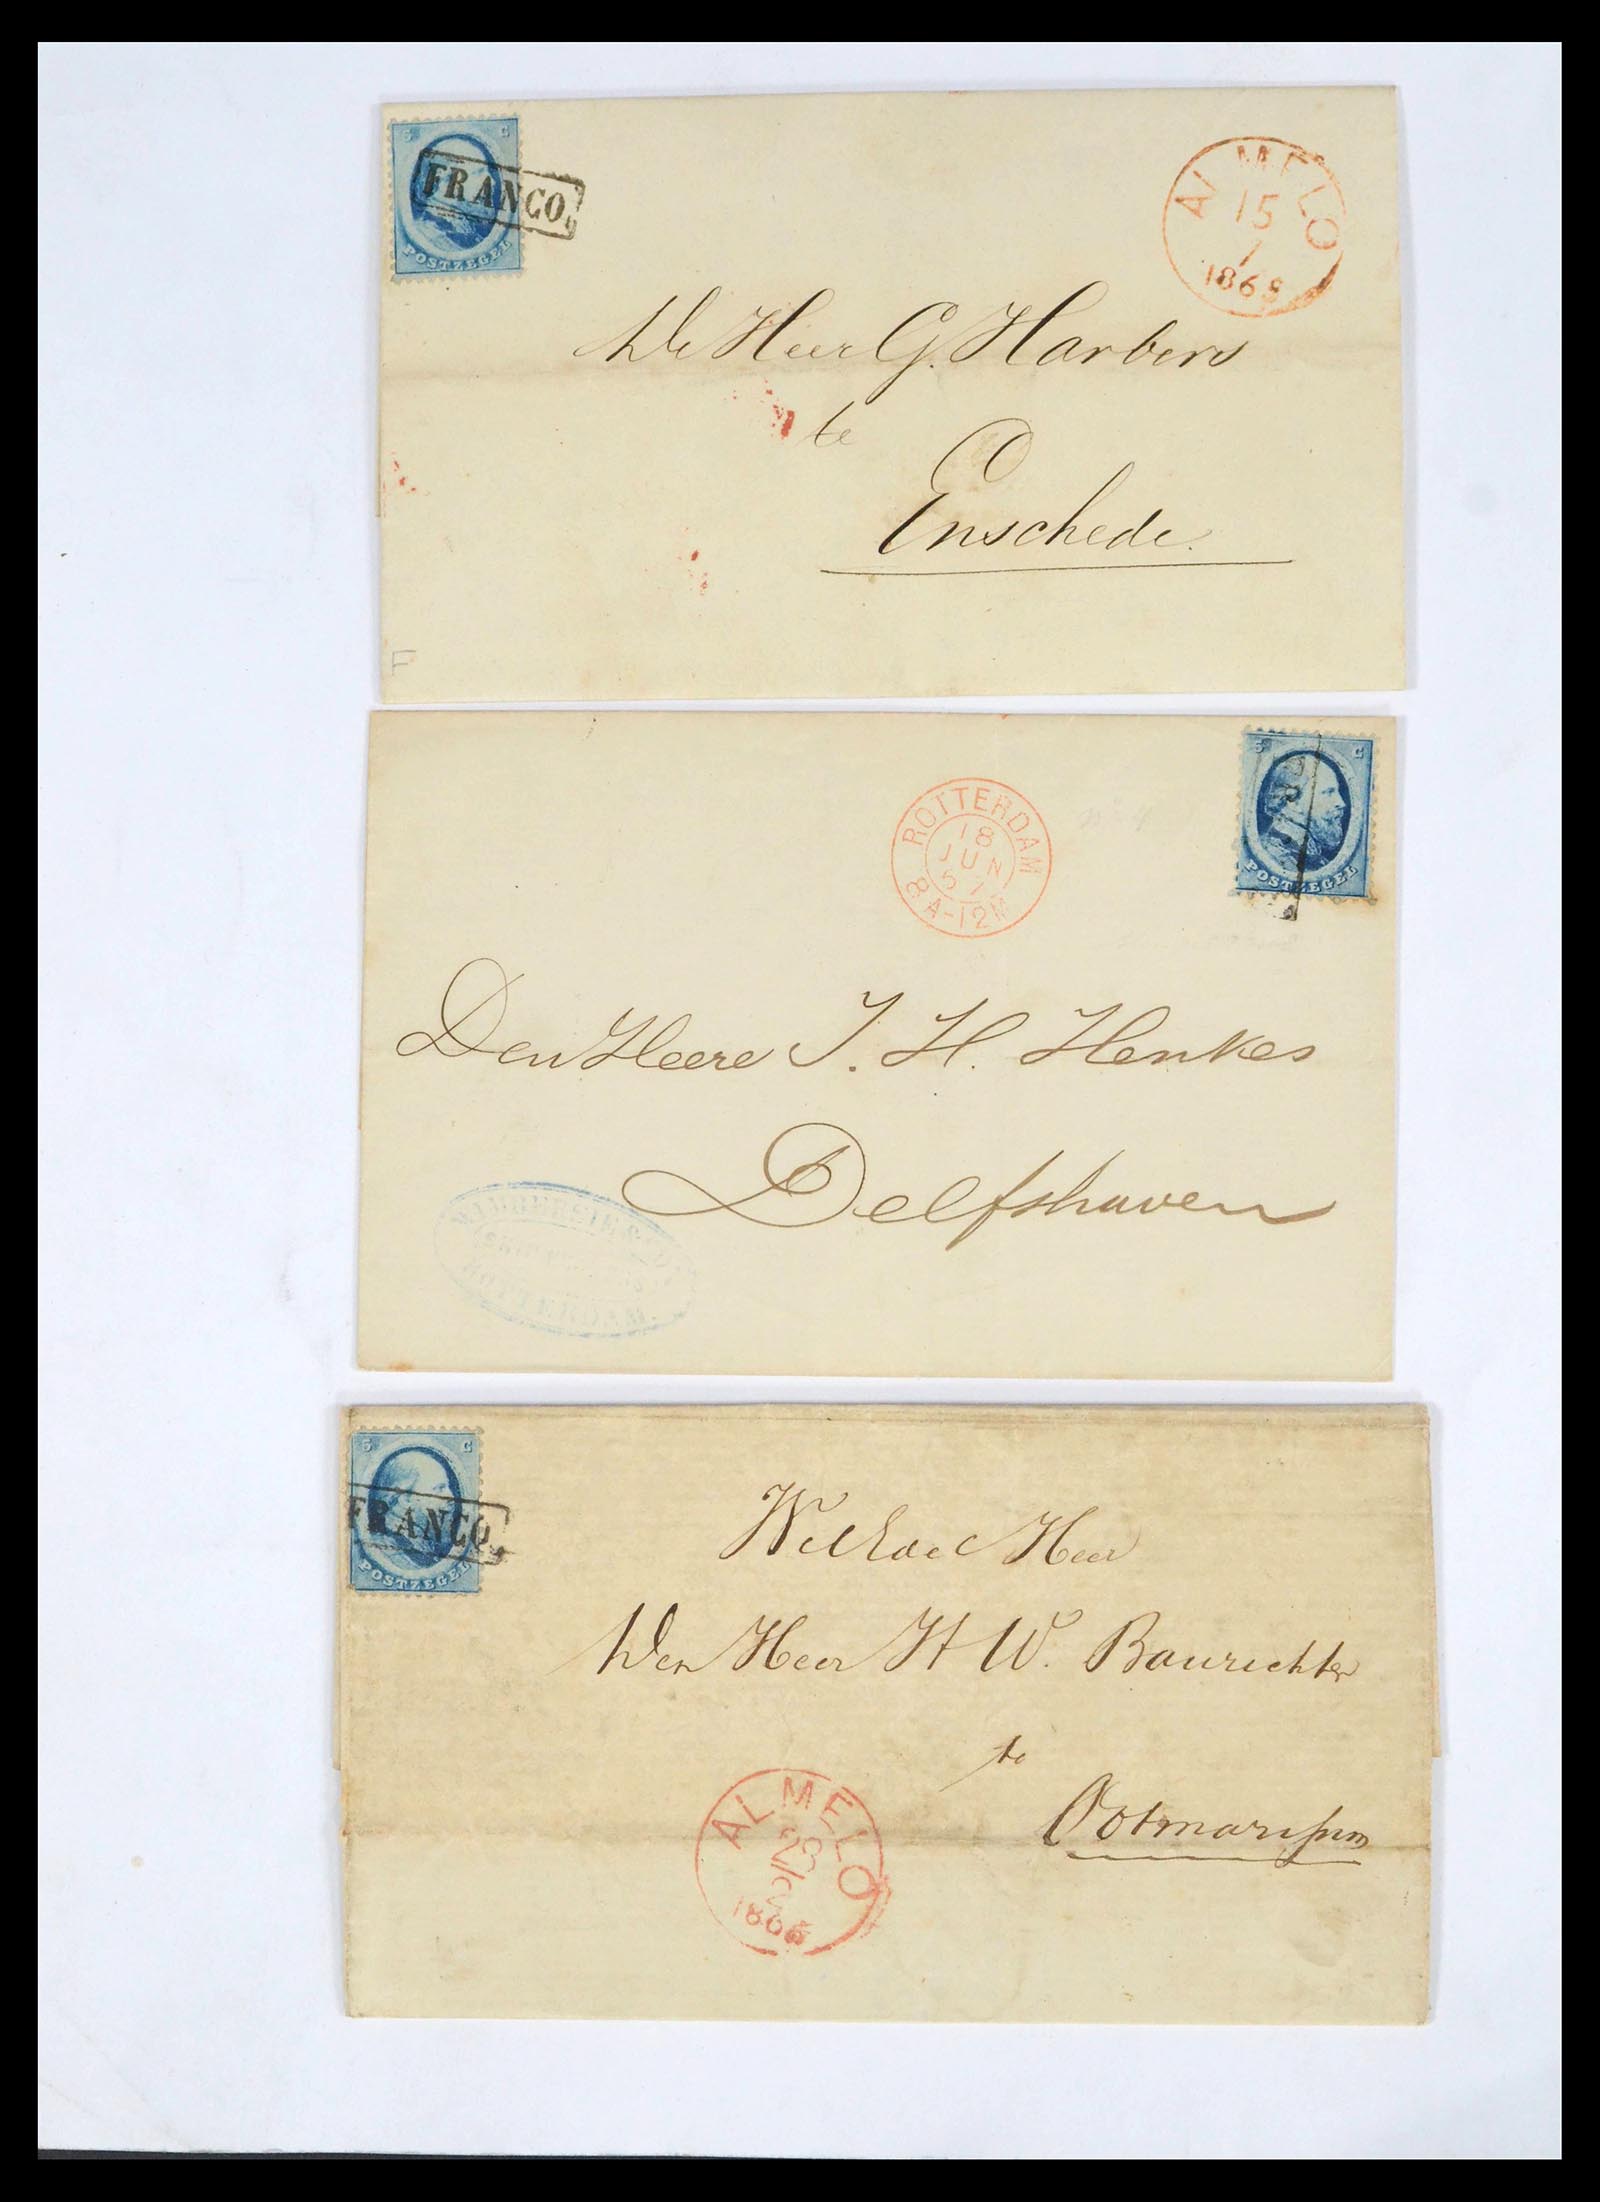 5 C
FRANCO
POSTZEGEL
ALMELO
15
1
1868
De Heer G. Harbers
te
Enschede.
F
5 C
POSTZEGEL
ROTTERDAM
18
JUN
67
8A-12M
Den Heere J. H. Henkes
Delfshaven
ROTTERDAM.
5 C
FRANCO
POSTZEGEL
WelEdel Heer
Den Heer H W. Baurichter
te
Ootmarssum
ALMELO
28
2
1866